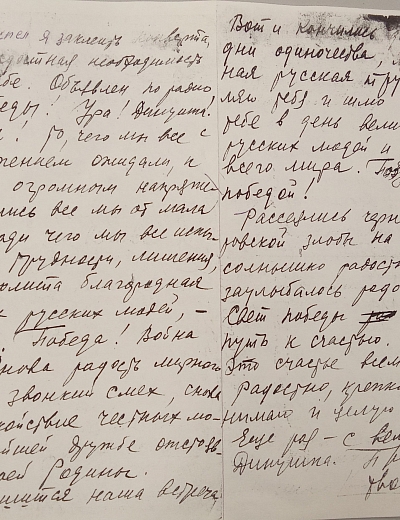 я заклеить конверта,
радостная необходимость
бе. Объявлен по радио
беды! Ура! Динушка.
! То, чего мы все с
нением ожидали, к
огромным напряже-
лись все мы от мала
ради чего мы все испы-
трудности, лишения,
олита благородная
х русских людей, –
Победа! Война
Снова радость мирного
звонкий смех, снова
койствие честных мо-
йшей дружбе отстояв
оей Родины.
ится наша встреча,
Вот и кончились
дни одиночества,
ная русская
ляю тебя и шлю
тебе в день вели
русских людей и
всего мира. Поб
победой!
Рассеялись черн
ровской злобы на
солнышко радост
заулыбалось радо
Свет победы
путь к счастью.
Это счастье всем
Радостно, крепко
нимаю и целую
Еще раз – с вел
Динушка.